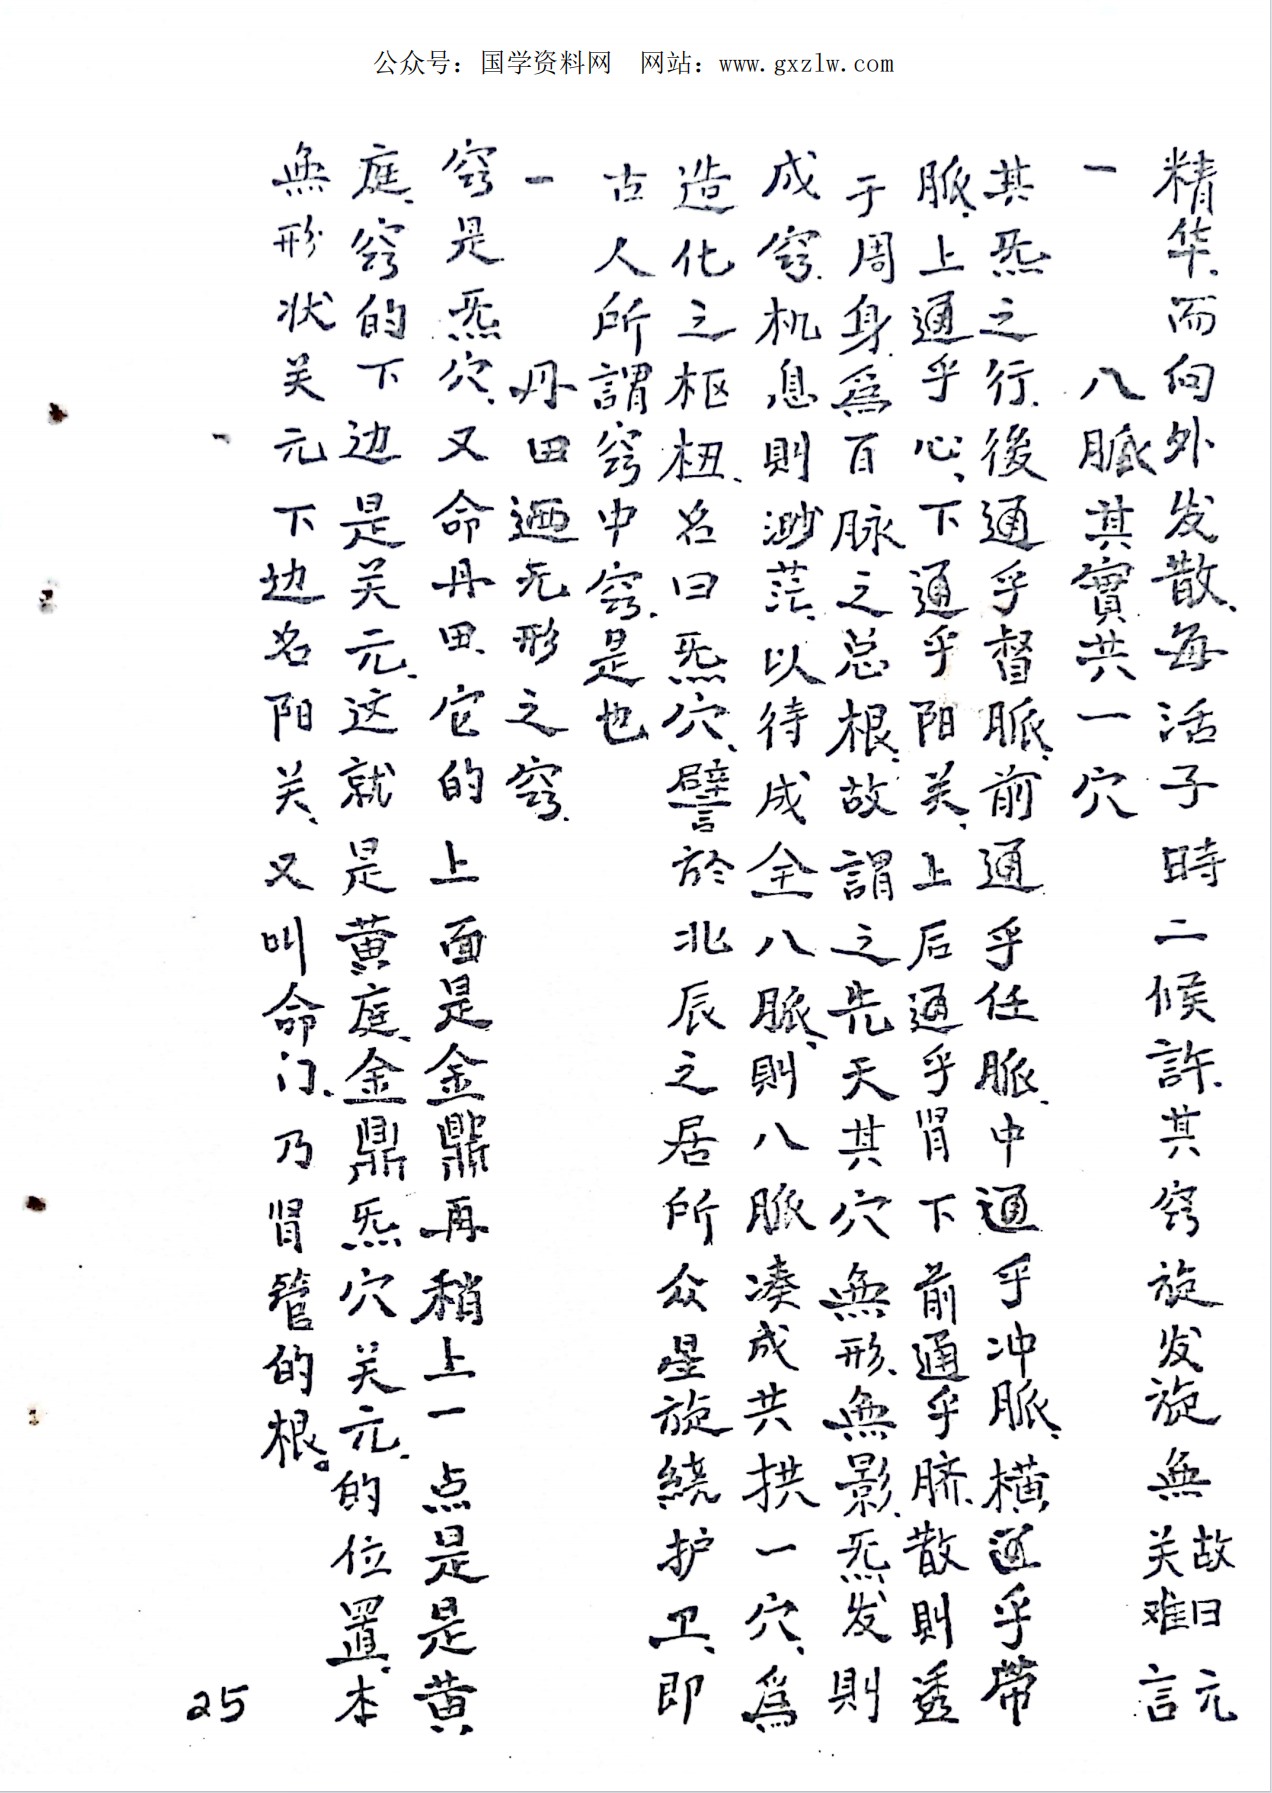 公众号：国学资料网 网站：www.gxzlw.com
精华、而向外发散、每活子時二候許、其窍旋发旋無 故曰元关难言
一 八脈其實共一穴
其炁之行、後通乎督脈、前通乎任脈、中通乎冲脈、横通乎带
脈、上通乎心、下通乎阳关、上后通乎肾下前通乎脐、散則透
于周身、爲百脉之总根、故謂之先天其穴無形、無影、炁发則
成窍、机息則渺茫、以待成全八脈、則八脈凑成共拱一穴、爲
造化之枢杻、名曰炁穴、譬於北辰之居所众星旋繞护卫、即
古人所謂窍中窍、是也
一 丹田迺无形之窍、
窍是炁穴、又命丹田、它的上面是金鼎再稍上一点是是黄
庭、窍的下边是关元、这就是黄庭、金鼎炁穴关元、的位置、本
無形状关元下边名阳关、又叫命门、乃肾管的根。
25